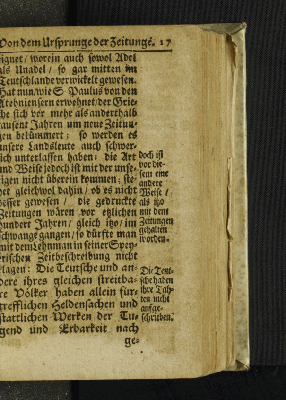 Von dem Ursprunge der Zeitunge. 17
eignet / worein auch sowol Adel
als Unadel / so gar mitten im
Teutschlande verwickelt gewesen.
Hat nun / wie S. Paulus von den
Atehniensern erwehnet / der Grie-
che sich vor mehr als anderthalb
tausent Jahren um neue Zeitun-
gen bekümmert; so werden es
unsere Landsleute auch schwer-
lich unterlassen haben: die Art
und Weise jedoch ist mit der unse-
rigen nicht überein kommen: ste-
het gleichwol dahin / ob es nicht
besser gewesen / die gedruckte
Zeitungen wären vor etzlichen
hundert Jahren / gleich itzo / im
schwange gangen / so dürfte man
mit dem Lehman in seiner Spey-
erischen Zeitbeschreibung nicht
klagen: Die Teutsche und an-
dere ihres gleichen streitba-
re Völker haben allein für-
trefflichen Heldensachen und
stattlichen Werken der Tu-
gend und Erbarkeit nach
ge-
doch ist
vor die-
sem eine
andere
Weise /
als itzo
mit dem
Zeitungen
gehalten
worden.
Die Teut-
sche haben
ihre Tah-
ten nicht
aufge-
schrieben.